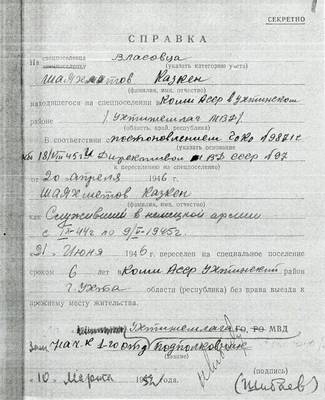 СЕКРЕТНО
СПРАВКА
На спецпоселенца Власовца
(указать категорию учета)
Шаяхметов Казкен
(фамилия, имя, отчество)
находящегося на спецпоселении в Коми АССР в Ухтинском
районе (Ухтижемлаг МВД)
(область, край, республика)
В соответствии постановлением ГоКо №9871с
(указать основание
от 18/VIII-45 г. и Директивой МВД СССР №97
к переселению на спецпоселение)
от 20 апреля 1946 г.
Шаяхметов Казкен
(фамилия, имя, отчество)
как служивший в немецкой армии
с IX-44г по 9/V-1945г.
21 Июня 1946 г. переселен на специальное поселение
сроком 6 лет Коми АССР Ухтинский район
г. Ухта области (республика) без права выезда к
прежнему месту жительства.
Ухтижемлага МВД
зам нач-к 1 отд подполковник
(звание)
(подпись)
10 Марта 1952 года.
(Шибаев)